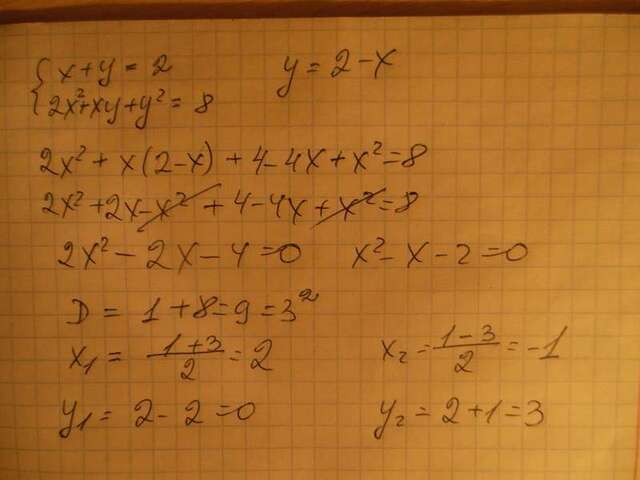 x + y = 2    y = 2 - x
2x² + xy + y² = 8
2x² + x(2 - x) + 4 - 4x + x² = 8
2x² + 2x - x² + 4 - 4x + x² = 8
2x² - 2x - 4 = 0    x² - x - 2 = 0
D = 1 + 8 = 9 = 3²
x₁ = (1 + 3)/2 = 2    x₂ = (1 - 3)/2 = -1
y₁ = 2 - 2 = 0    y₂ = 2 + 1 = 3